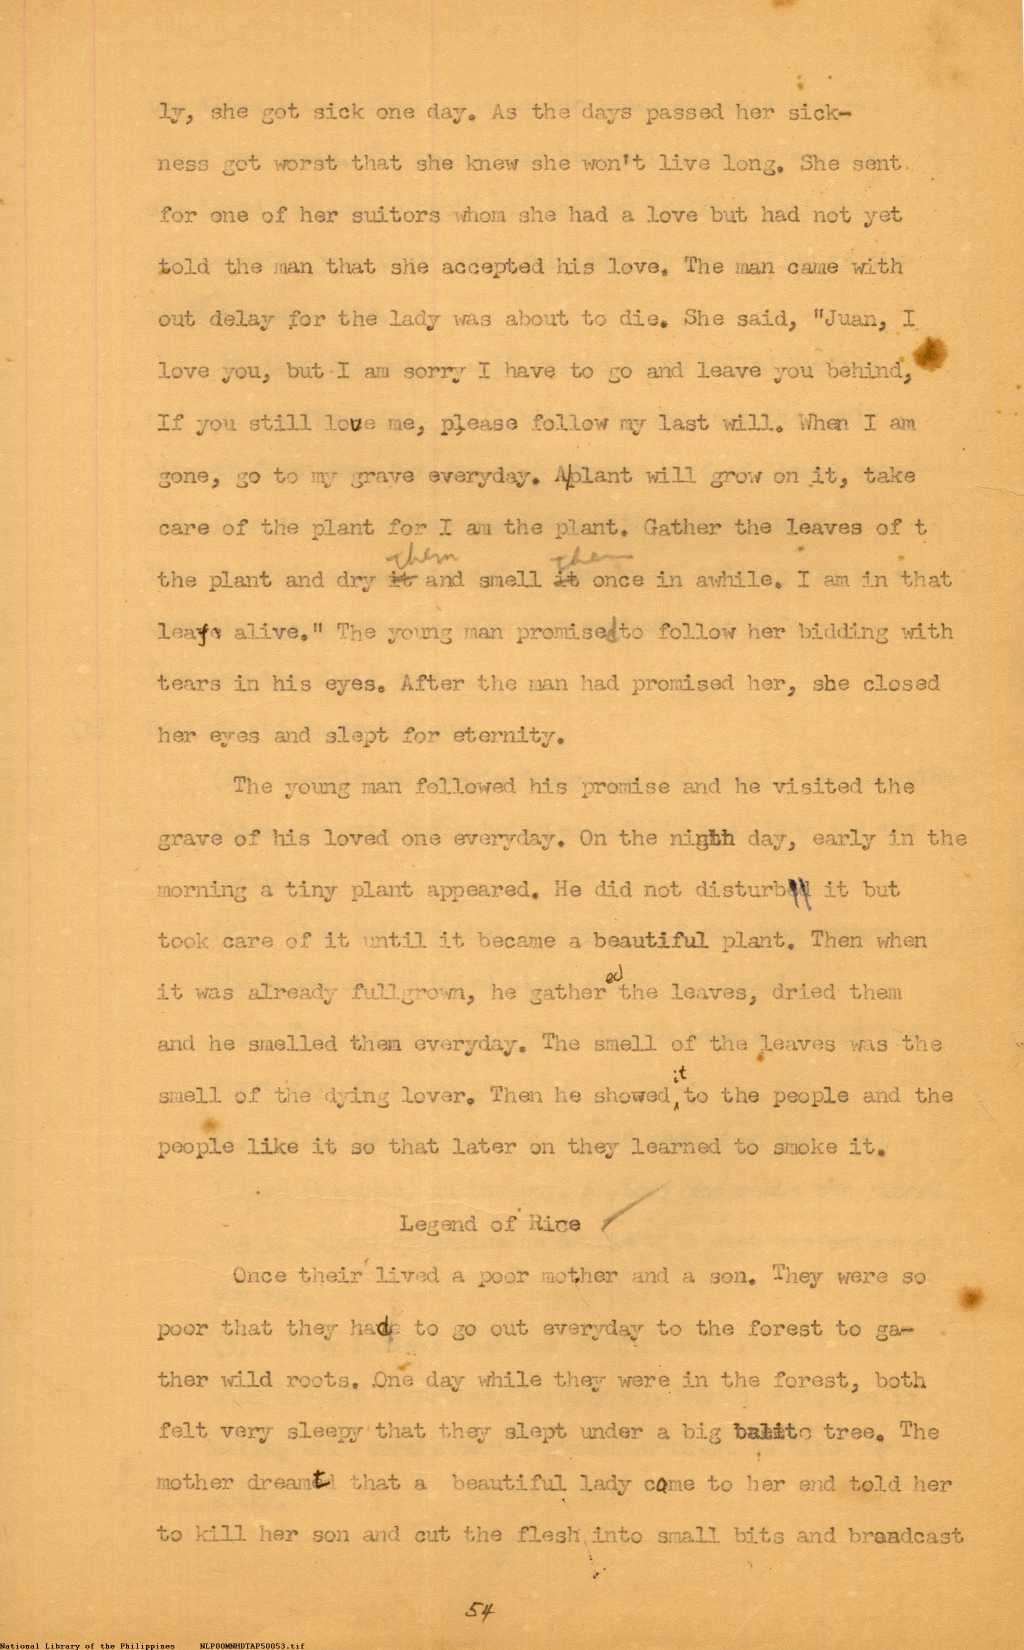 ly, she got sick one day. As the days passed her sick-
ness got worst that she knew she won't live long. She sent
for one of her suitors whom she had a love but had not yet
told the man that she accepted his love. The man came with
out delay for the lady was about to die. She said, "Juan, I
love you, but I am sorry I have to go and leave you behind,
If you still love me, please follow my last will. When I am
gone, go to my grave everyday. A plant will grow on it, take
care of the plant for I am the plant. Gather the leaves of t
them them
the plant and dry it and smell it once in awhile. I am in that
leafe alive." The young man promised to follow her bidding with
tears in his eyes. After the man had promised her, she closed
her eyes and slept for eternity.
The young man followed his promise and he visited the
grave of his loved one everyday. On the ninth day, early in the
morning a tiny plant appeared. He did not disturb it but
took care of it until it became a beautiful plant. Then when
it was already fullgrown, he gathered the leaves, dried them
and he smelled them everyday. The smell of the leaves was the
smell of the dying lover. Then he showed it to the people and the
people like it so that later on they learned to smoke it.
Legend of Rice
Once their lived a poor mother and a son. They were so
poor that they had to go out everyday to the forest to ga-
ther wild roots. One day while they were in the forest, both
felt very sleepy that they slept under a big balite tree. The
mother dreamt that a beautiful lady come to her end told her
to kill her son and cut the flesh into small bits and broadcast
54
National Library of the Philippines NLP00MNHDTAP50053.tif